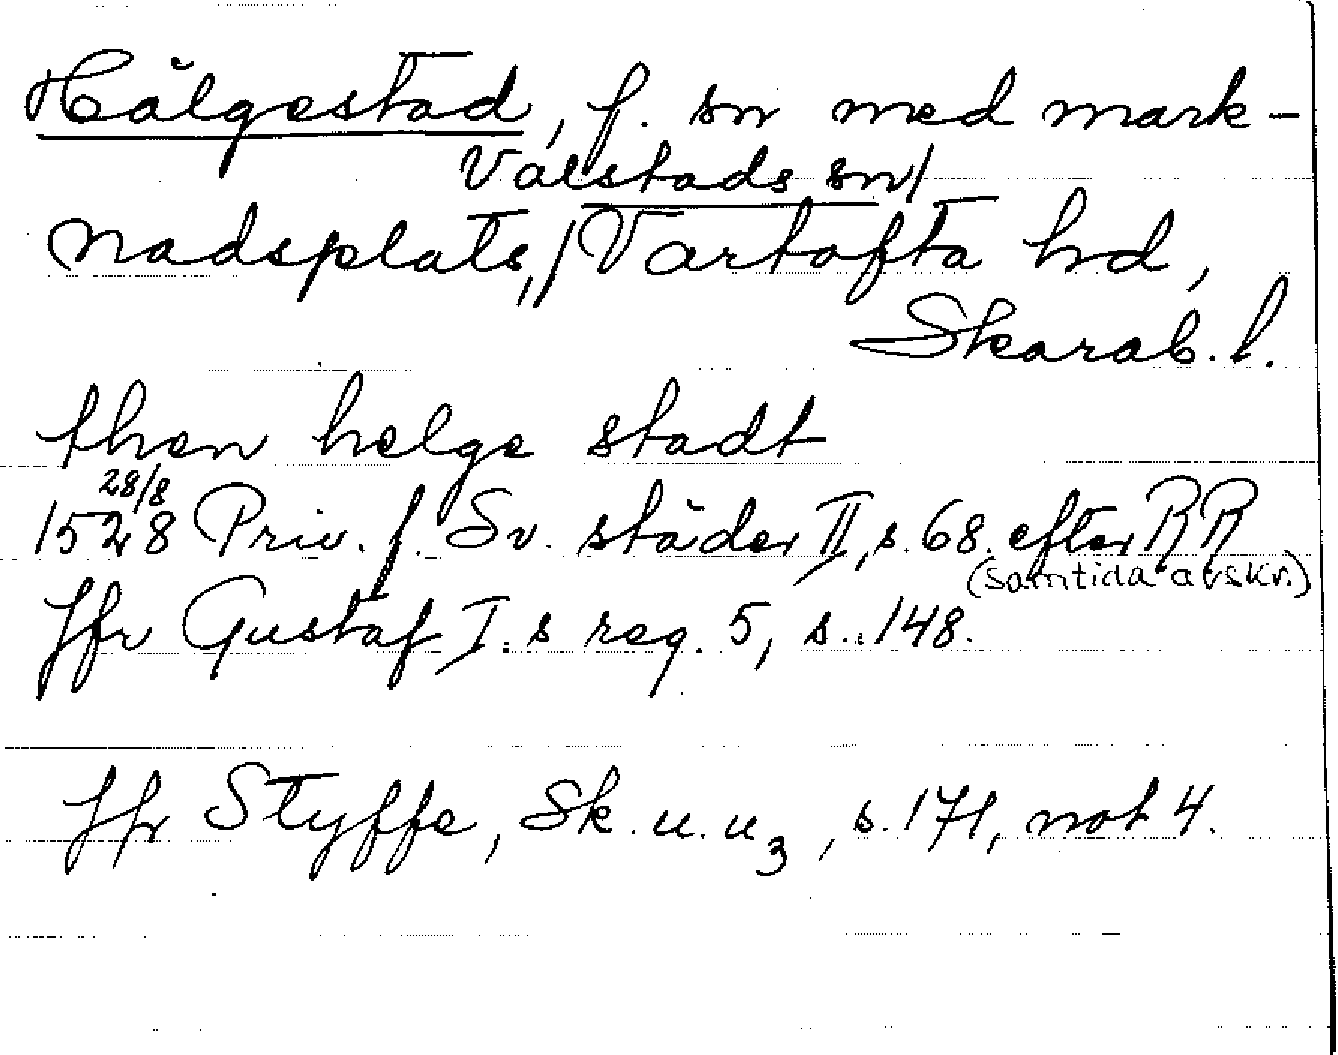 Hälgestad, f. sn med mark-
Valstads sn/
nadsplats,/ Vartofta hd,
Skarab. l.
then helge stadt
28/8
1528 Priv. f. Sv. städer II, s. 68. efter RR
(samtida avskr.)
Jfr Gustaf I:s reg. 5, s. 148.
Jfr Styffe, Sk. u. u3, s. 171, not 4.